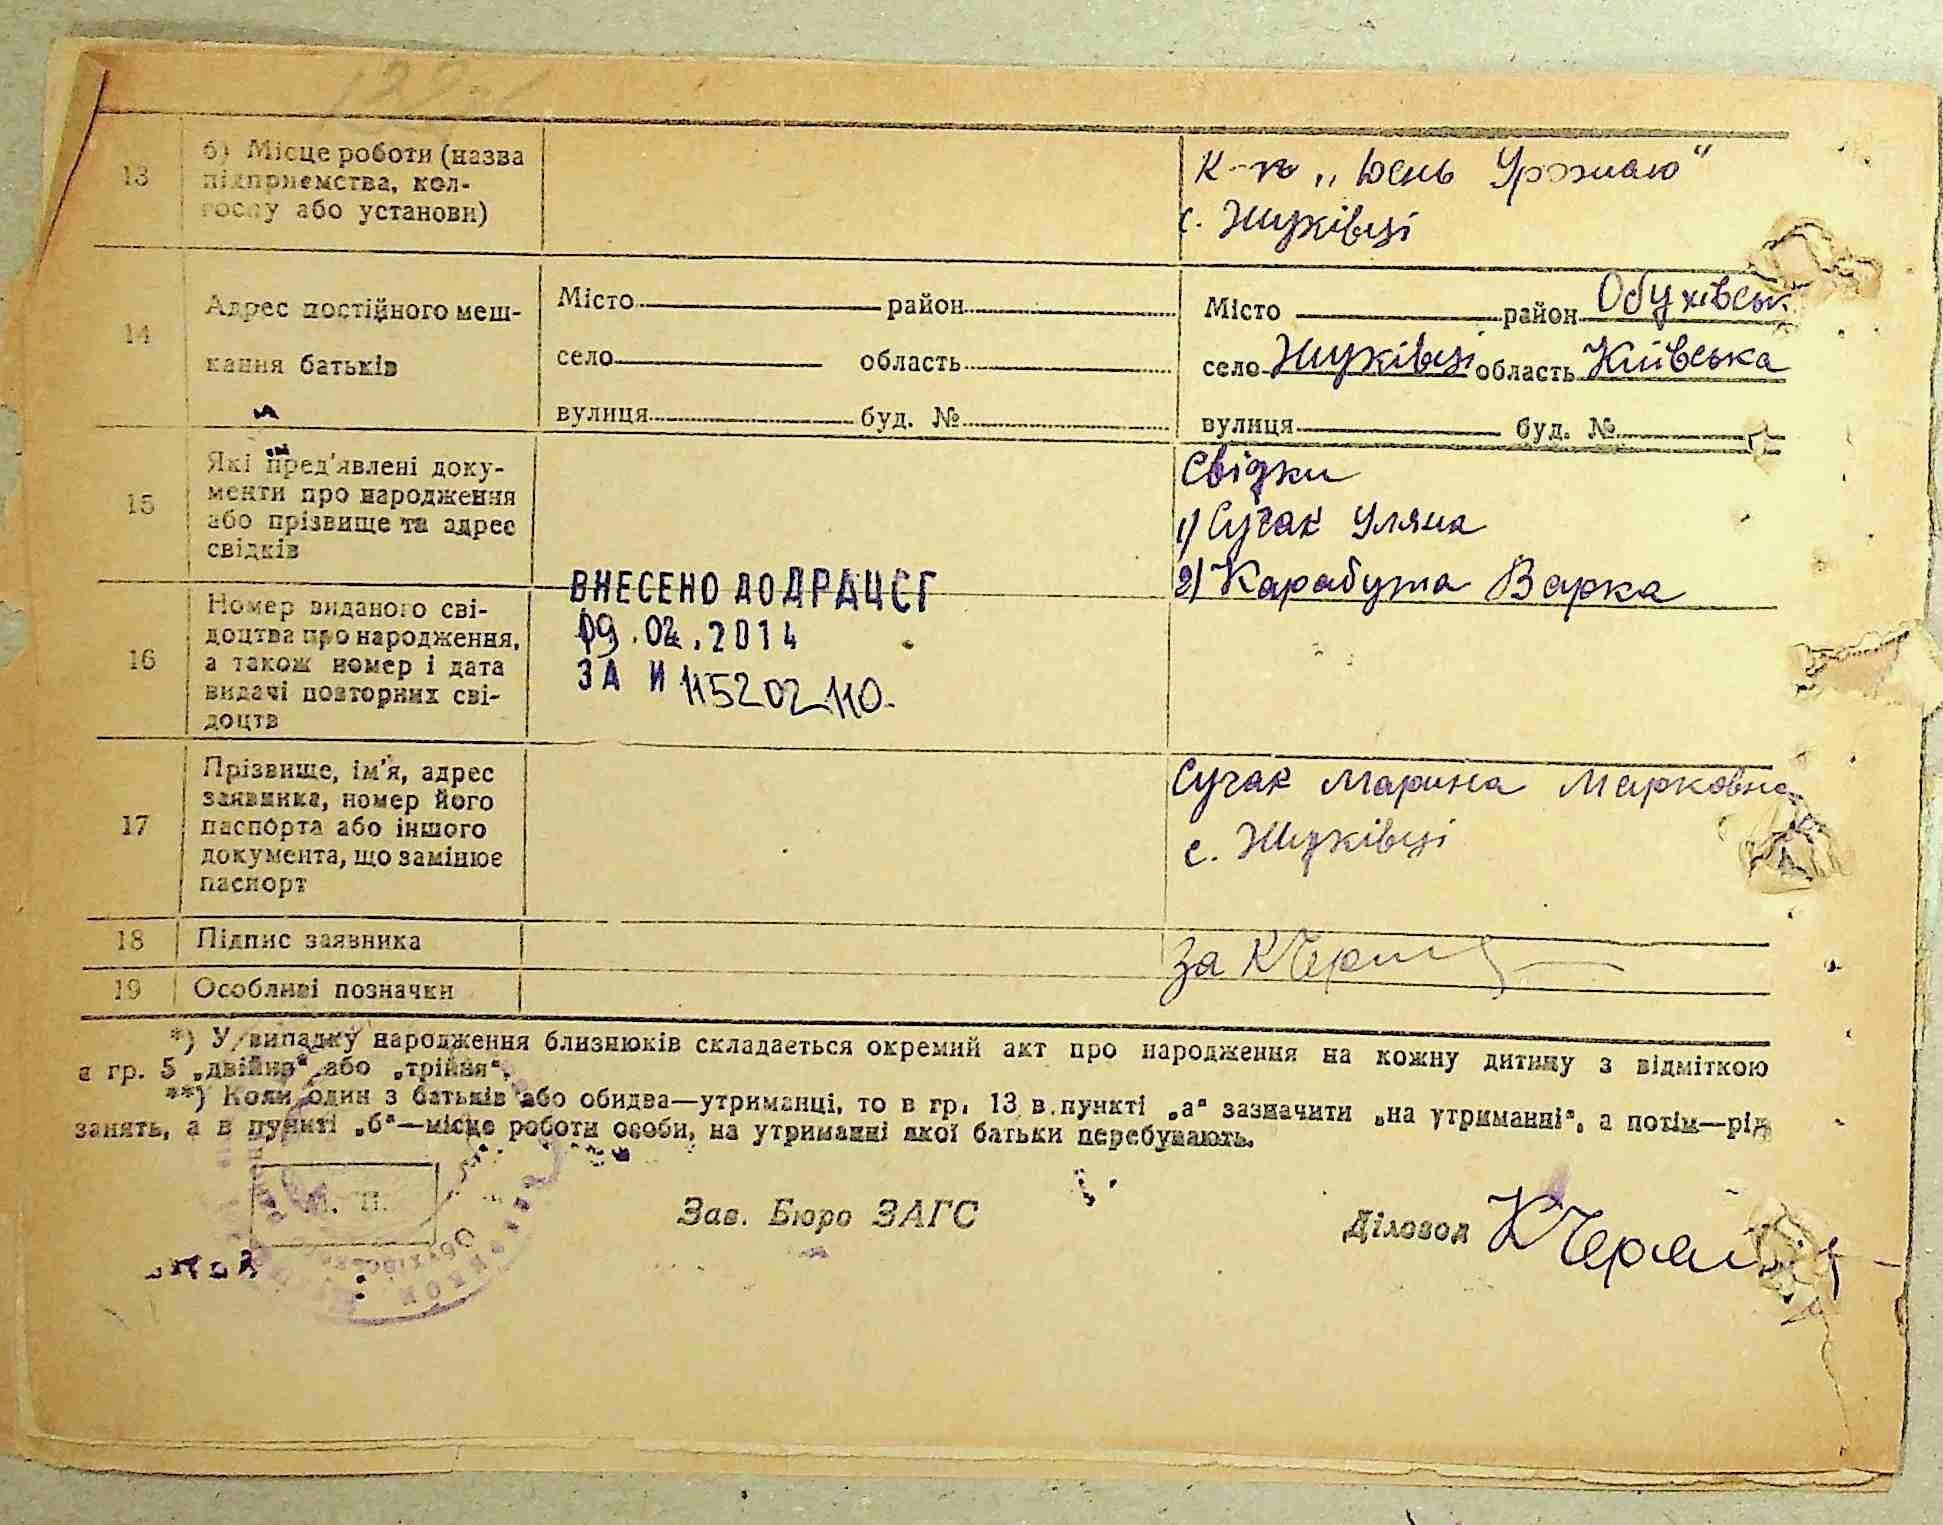 13
б) Місце роботи (назва
підприємства, кол-
госпу або установи)
к-п „День Урожаю“
с. Жуківці
14
Адрес постійного меш-
кання батьків
Місто район
село область
вулиця буд. №
Місто район Обухівськ
село Жуківці область Київська
вулиця буд. №
15
Які пред'явлені доку-
менти про народження
або прізвище та адрес
свідків
Свідки
1) Сучак Уляна
2) Карабута Варка
16
Номер виданого сві-
доцтва про народження,
а також номер і дата
видачі повторних сві-
доцтв
ВНЕСЕНО ДО ДРАЦСГ
09.02.2014
ЗА И 115202110.
17
Прізвище, ім'я, адрес
заявника, номер його
паспорта або іншого
документа, що замінює
паспорт
Сучак Марина Марковна
с. Жуківці
18
Підпис заявника
За
19
Особливі позначки
*) У випадку народження близнюків складається окремий акт про народження на кожну дитину з відміткою
в гр. 5 „двійня“ або „трійня“.
**) Коли один з батьків або обидва—утриманці, то в гр. 13 в пункті „а“ зазначити „на утриманні“, а потім—рід
занять, а в пункті „б“—місце роботи особи, на утриманні якої батьки перебувають.
М. П.
Зав. Бюро ЗАГС
Діловод